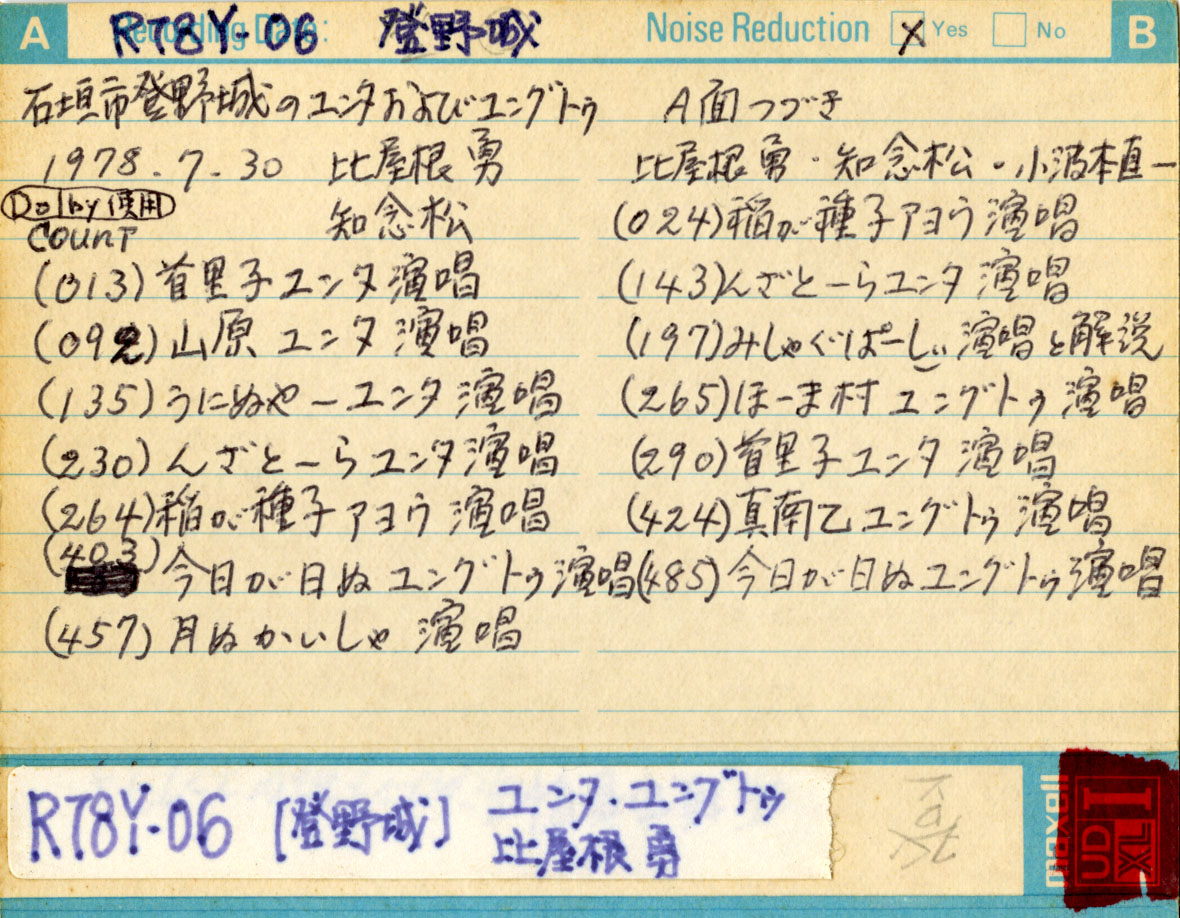 A Recording Date: Noise Reduction Yes No B
R78Y-06 登野城
石垣市登野城のユンタおよびユングトゥ
1978.7.30 比屋根勇
Dolby使用
知念松
COUNT
(013)首里子ユンタ演唱
(092)山原ユンタ演唱
(135)うにぬやーユンタ演唱
(230)んざとーらユンタ演唱
(264)稲が種子アヨウ演唱
(403)今日が日ぬユングトゥ演唱
(457)月ぬかいしゃ演唱
A面つづき
比屋根勇・知念松・小波本直一
(024)稲が種子アヨウ演唱
(143)んざとーらユンタ演唱
(197)みしゃぐぱーしぃ演唱と解説
(265)ほーま村ユングトゥ演唱
(290)首里子ユンタ演唱
(424)真南乙ユングトゥ演唱
(485)今日が日ぬユングトゥ演唱
R78Y-06 [登野城] ユンタ・ユングトゥ
比屋根勇
maxell
UD XL I